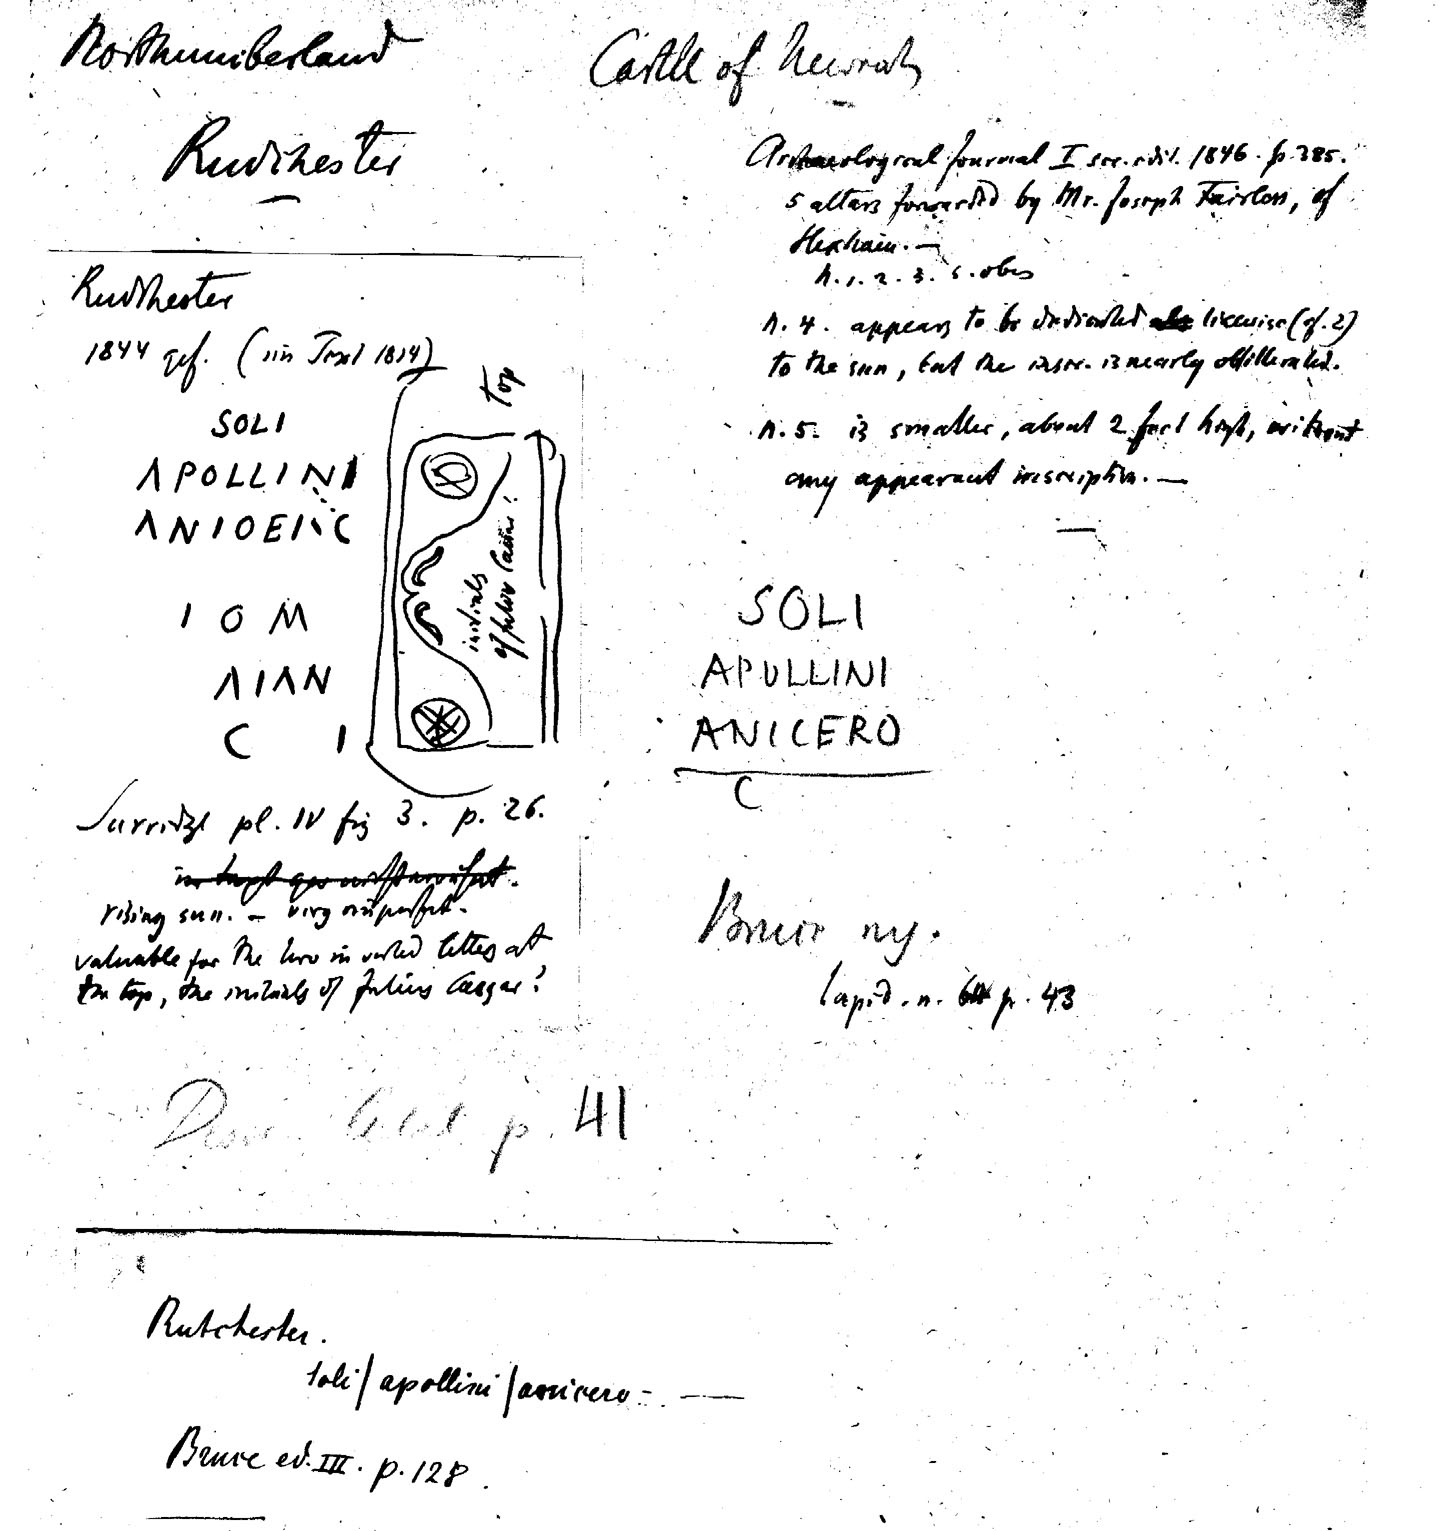 Northumberland
Rudchester
Castle of
Archaeological Journal I sec. edit. 1846. p. 385.
5 altars forwarded by Mr. Joseph Fairless, of
Hexham. —
n. 1. 2. 3. s. obs
n. 4. appears to be dedicated likewise (cf. 2)
to the sun, but the inscr. is nearly obliterated.
n. 5. is smaller, about 2 feet high, without
any appearant inscription. —
Rudchester
1844 gef. (im Text 1814)
SOLI
APOLLINI
ANIOEIIC
I O M
AIAN
C I
top
initials
of Julius Caesar!
Surridge pl. IV fig 3. p. 26.
rising sun. — very imperfect.
valuable for the two inverted letters at
the top, the initials of Julius Caesar?
SOLI
APULLINI
ANICERO
C
Bruce
lapid. n. p. 43
p. 41
Rutchester.
soli / apollini / anicero - —
Bruce ed. III. p. 128.